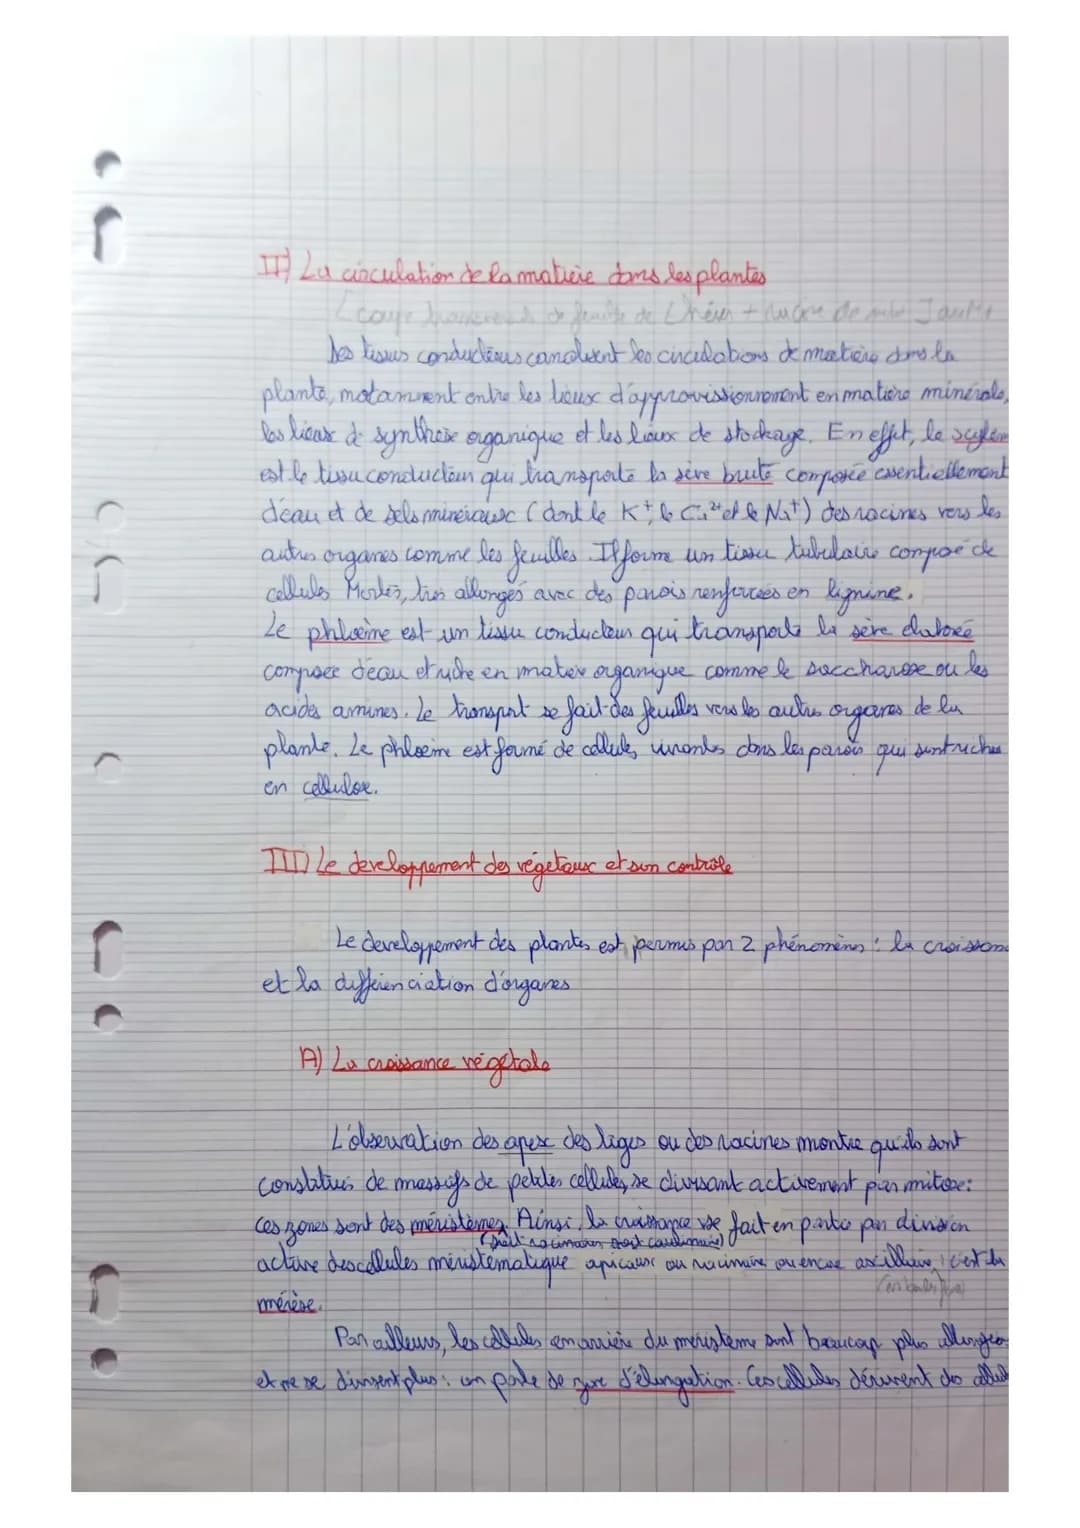 II) La circulation de la matière dans les plantes
[coupe de feuille de
Les tissus conducteurs canalisent les circulations de matière dans la
plante, notamment entre les lieux d'approvissionnement en matière minérale,
les lieux de synthèse organique et les lieux de stockage. En effet, le xylem
est le tissu conducteur qui transporte la sève brute composée essentiellement
d'eau et de sels minéraux (dont le K+, le Ca2+ et le Na+) des racines vers les
autres organes comme les feuilles. Il forme un tissu tubulaire composé de
cellules Mortes, très allongés avec des parois renforcées en lignine.
Le phloème est un tissu conducteur qui transporte la sève elaboré
composée d'eau et riche en matière organique comme le saccharose ou les
acides aminés. Le transport se fait des feuilles vers les autres organes de la
plante. Le phloème est formé de cellules vivantes dans les parois qui sont riches
en cellulose.
III) Le developpement des végétaux et son contrôle
Le developpement des plantes est permis par 2 phénomènes : la croissan
et la différenciation d'organes
A) La croissance végétale
L'observation des apex des tiges ou des racines montre qu'ils sont
constitués de massifs de petites cellules, se divisant activement par mitose :
ces zones sont des méristèmes. Ainsi, la croissance se fait en partie par division
(soit racinaires soit caulinaire)
active des cellules méristématique apicaux ou racinaire ou encore axillaire, c'est la
mérèse.
Par ailleurs, les cellules en arrière du méristème sont beaucoup plus allongées
et ne se divisent plus : on parle de zone d'élongation. Ces cellules dérivent des cellul